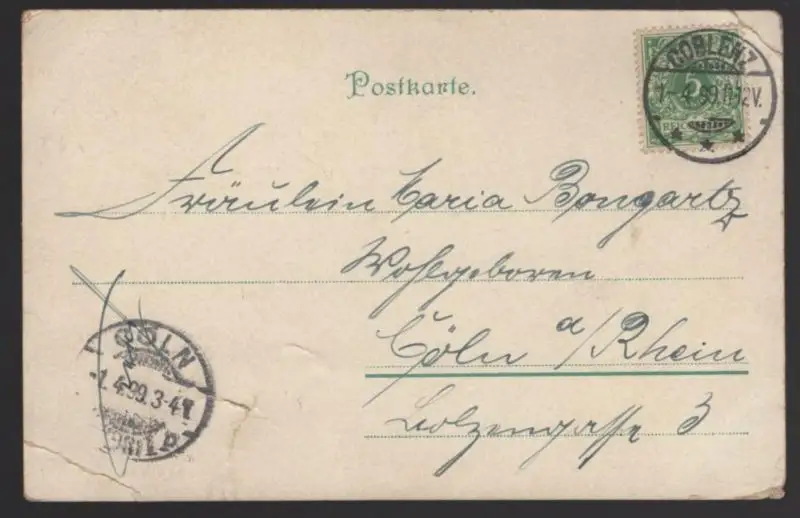 Postkarte.
COBLENZ
1.-4.99.11-12V.
5
REICHS
Fräulein Maria Bongartz
Wohlgeboren
Cöln a/Rhein
Bolzengasse 3
CÖLN
1.4.99.3-4